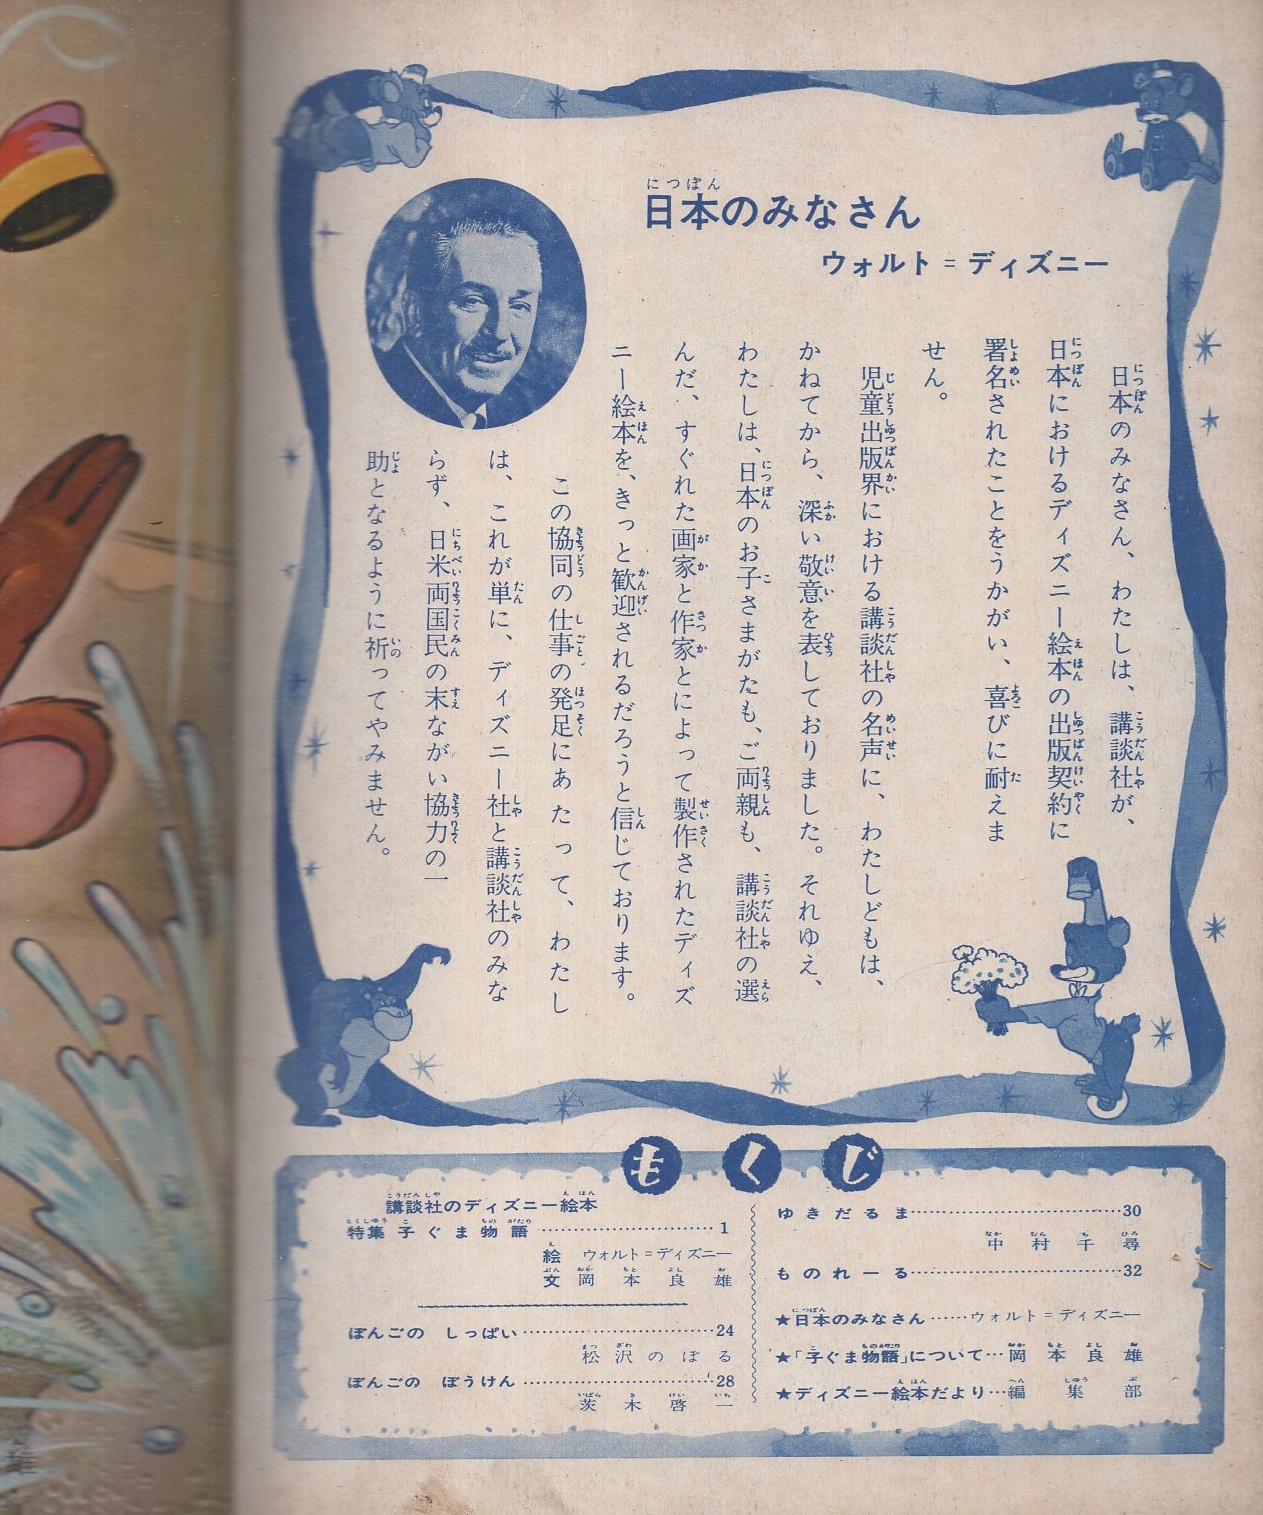 日本のみなさん
ウォルト=ディズニー
日本のみなさん、わたしは、講談社が、
日本におけるディズニー絵本の出版契約に
署名されたことをうかがい、喜びに耐えま
せん。
児童出版界における講談社の名声に、わたしどもは、
かねてから、深い敬意を表しておりました。それゆえ、
わたしは、日本のお子さまがたも、ご両親も、講談社の選
んだ、すぐれた画家と作家とによって製作されたディズ
ニー絵本を、きっと歓迎されるだろうと信じております。
この協同の仕事の発足にあたって、わたし
は、これが単に、ディズニー社と講談社のみな
らず、日米両国民の末ながい協力の一
助となるように祈ってやみません。
もくじ
講談社のディズニー絵本
特集 子ぐま物語…………1
絵 ウォルト=ディズニー
文 岡本良雄
ぼんごの しっぱい…………24
松沢のぼる
ぼんごの ぼうけん…………28
茨木啓一
ゆきだるま…………30
中村千尋
ものれーる…………32
★日本のみなさん……ウォルト=ディズニー
★「子ぐま物語」について…岡本良雄
★ディズニー絵本だより…編集部